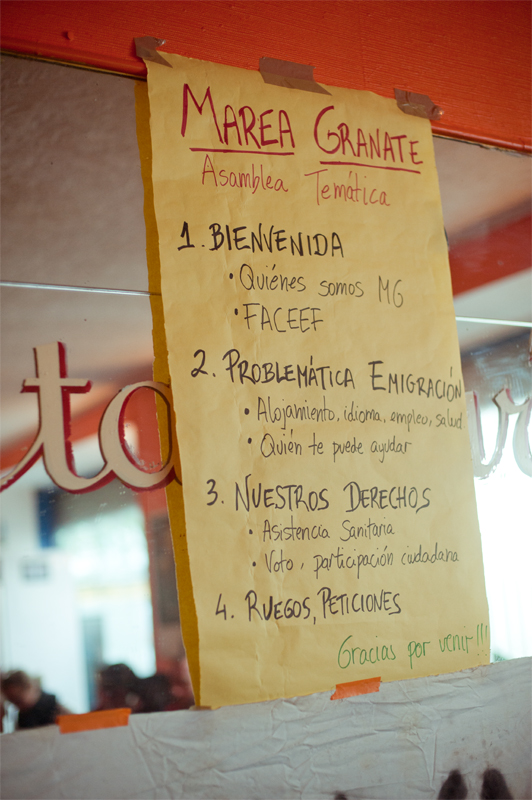 MAREA GRANATE
Asamblea Temática
1. BIENVENIDA
• Quiénes somos MG
• FACEEF
2. PROBLEMÁTICA EMIGRACIÓN
• Alojamiento, idioma, empleo, salud
• Quién te puede ayudar
3. NUESTROS DERECHOS
• Asistencia Sanitaria
• Voto, participación ciudadana
4. RUEGOS, PETICIONES
Gracias por venir!!!